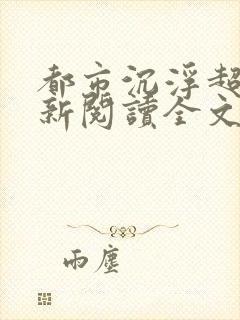 都市沉浮超
新閱讀全文
雨塵